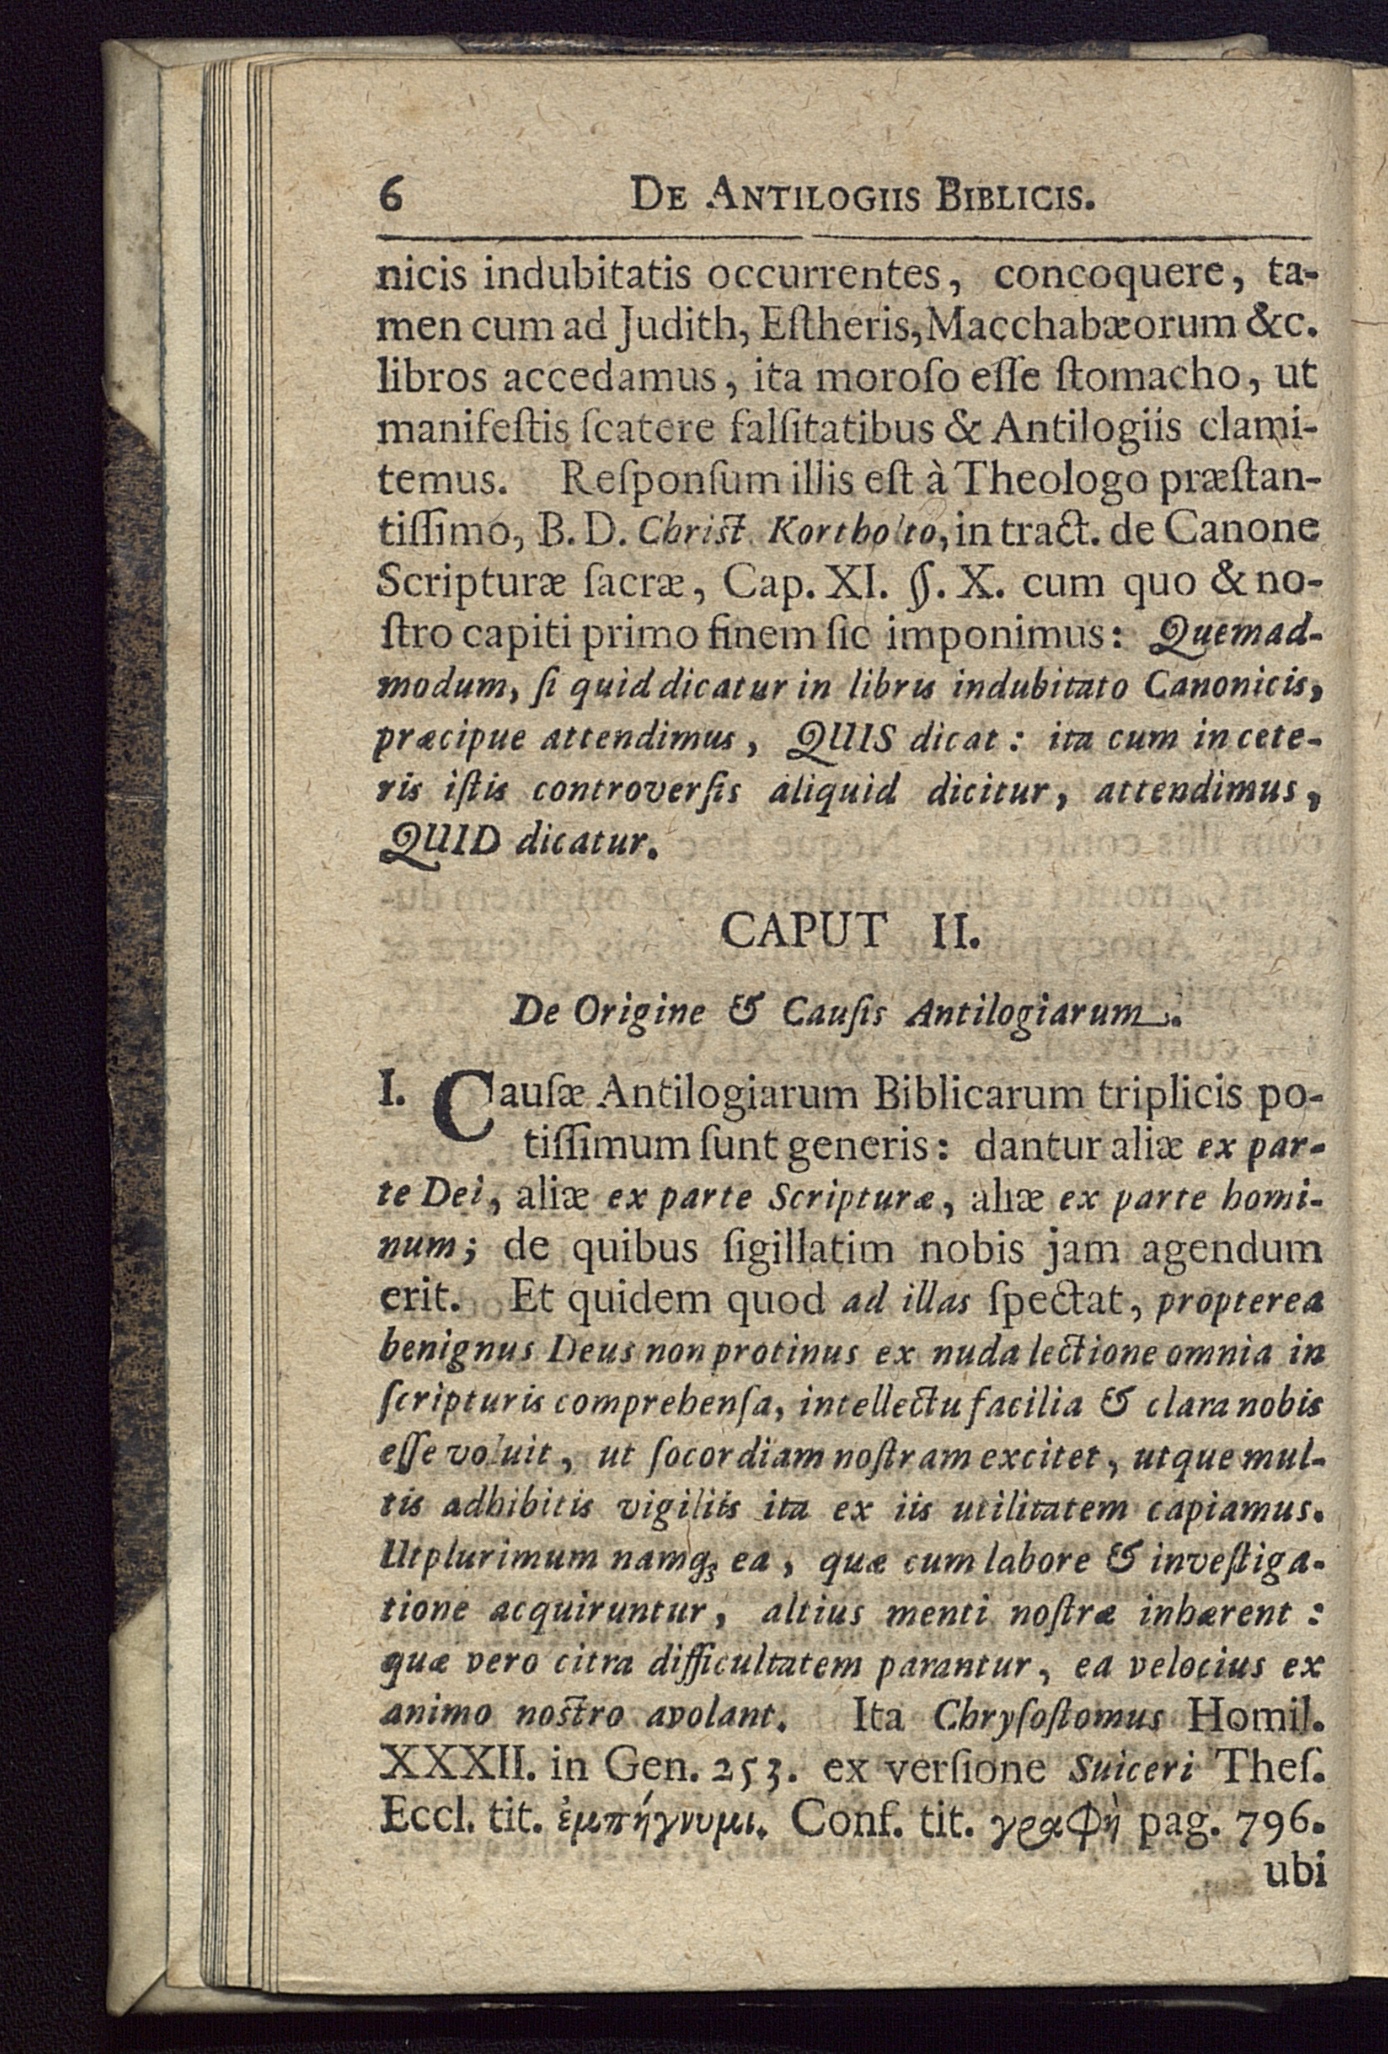 6 DE ANTILOGIIS BIBLICIS.
nicis indubitatis occurrentes, concoquere, ta-
men cum ad Judith, Eſtheris, Macchabæorum &c.
libros accedamus, ita moroſo eſſe ſtomacho, ut
manifeſtis ſcatere falſitatibus & Antilogiis clami-
temus. Reſponſum illis eſt à Theologo præſtan-
tiſſimo, B. D. Chriſt. Kortholto, in tract. de Canone
Scripturæ ſacræ, Cap. XI. §. X. cum quo & no-
ſtro capiti primo finem ſic imponimus: Quemad-
modum, ſi quid dicatur in libris indubitato Canonicis,
præcipue attendimus, QUIS dicat: ita cum in cete-
ris iſtis controverſis aliquid dicitur, attendimus,
QUID dicatur.
CAPUT II.
De Origine & Cauſis Antilogiarum.
I. Cauſæ Antilogiarum Biblicarum triplicis po-
tiſſimum ſunt generis: dantur aliæ ex par-
te Dei, aliæ ex parte Scripturæ, aliæ ex parte homi-
num; de quibus ſigillatim nobis jam agendum
erit. Et quidem quod ad illas ſpectat, propterea
benignus Deus non protinus ex nuda lectione omnia in
ſcripturis comprehenſa, intellectu facilia & clara nobis
eſſe voluit, ut ſocordiam noſtram excitet, utque mul-
tis adhibitis vigiliis ita ex iis utilitatem capiamus.
Utplurimum namq; ea, quæ cum labore & inveſtiga-
tione acquiruntur, altius menti noſtræ inhærent:
quæ vero citra difficultatem parantur, ea velocius ex
animo noſtro avolant. Ita Chryſoſtomus Homil.
XXXII. in Gen. 253. ex verſione Suiceri Theſ.
Eccl. tit. ἐμπήγνυμι. Conf. tit. γραφὴ pag. 796.
ubi